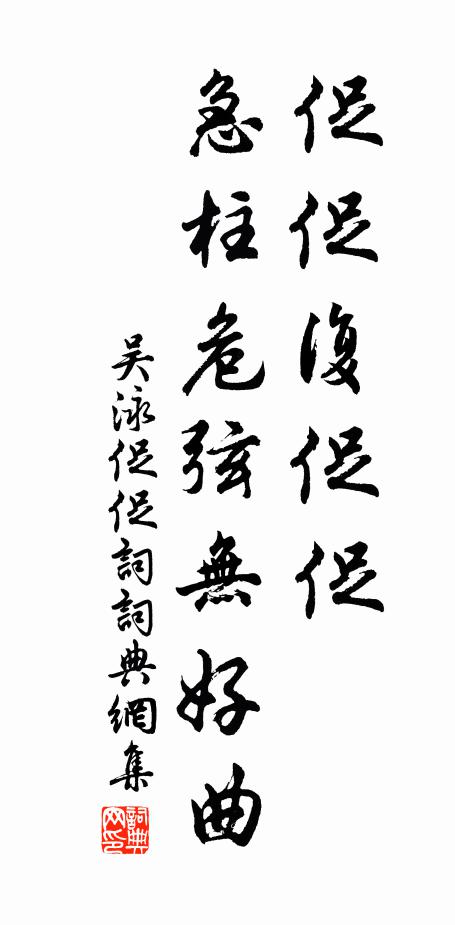 促促復促促
急柱危弦無好曲
吴泳促促詞詞典網集
詞典网印